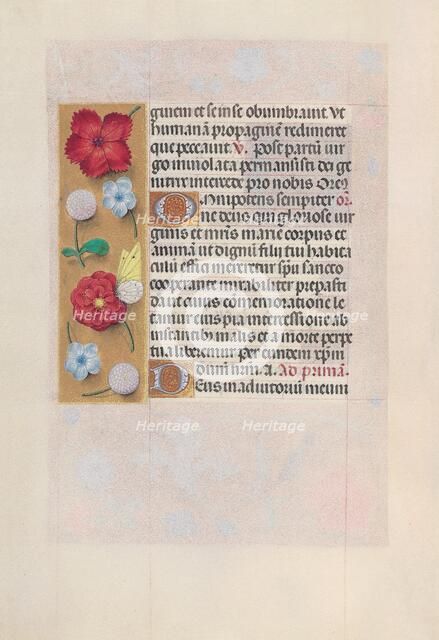 guinem et se in se obumbravit. Ut
humanā propaginē redimeret
que peccavit. V. Post partū vir
go inviolata permansisti dei ge
nitrix intercede pro nobis Orem
Omnipotens sempiter or̄.
ne deus qui gloriose vir
ginis et mr̄is marie corpus et
animam ut dignū filii tui habita
culū effici mereretur spū sancto
cooperante mirabiliter preparasti
da ut cuius comemoratione le
tamur eius pia intercessione ab
instantib malis et a morte perpe
tua liberemur per eundem xp̄m
dom̄ nrm. A. Ad primā.
Deus in adiutoriū meum
Heritage
Heritage
Heritage
Heritage
Heritage
Heritage